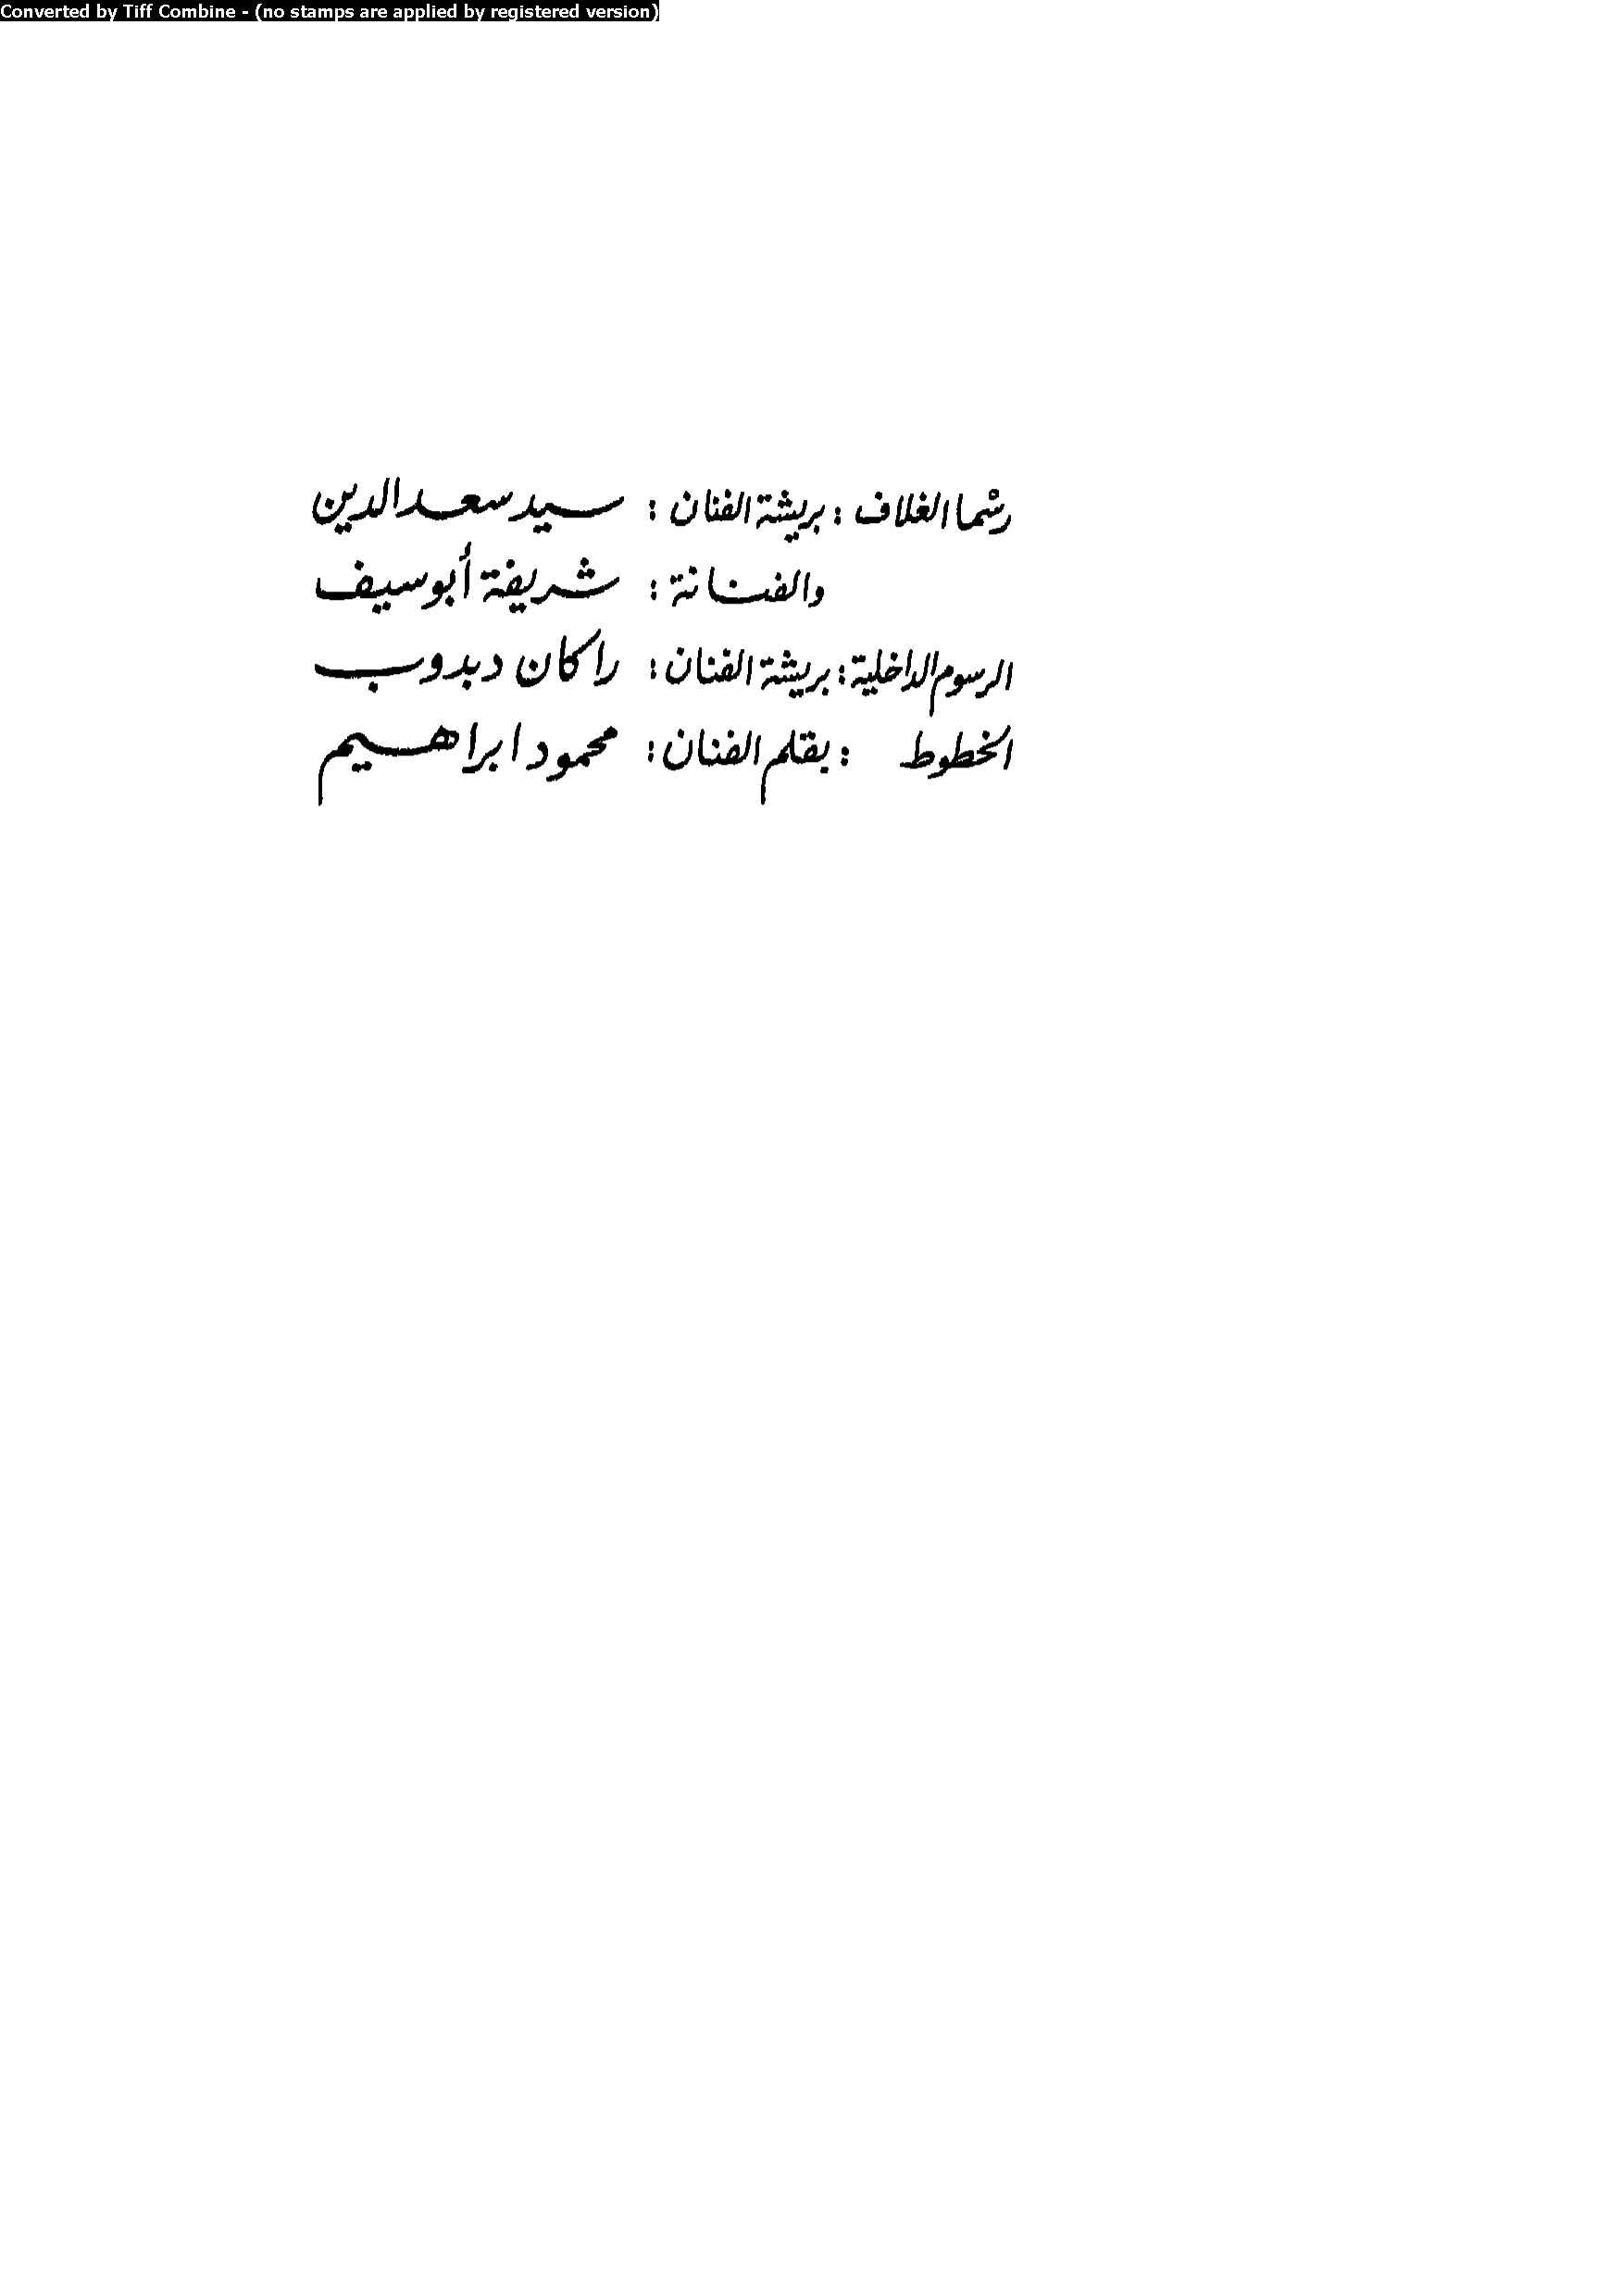 Converted by Tiff Combine - (no stamps are applied by registered version)
رسْما الغلاف : بريشة الفنان : سيد سعد الدين
والفنانة : شريفة أبو سيف
الرسوم الداخلية : بريشة الفنان : راكان دبدوب
الخطوط : بقلم الفنان : محمود ابراهيم